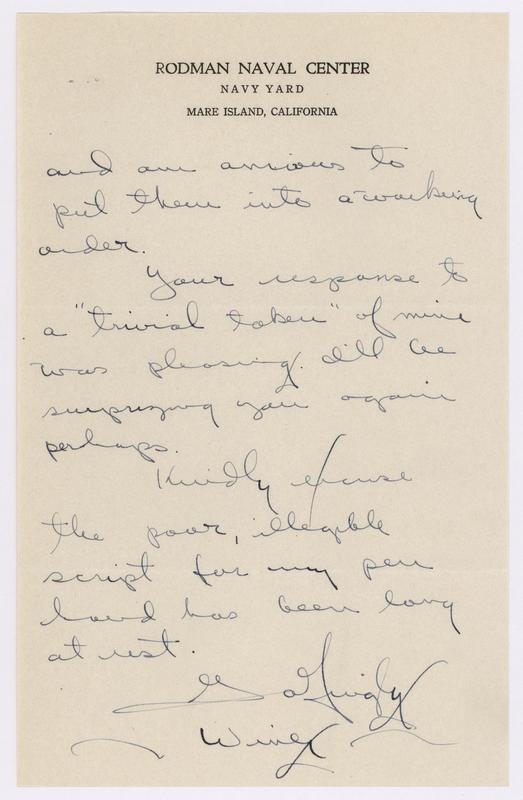 RODMAN NAVAL CENTER
NAVY YARD
MARE ISLAND, CALIFORNIA
and am anxious to
put them into a working
order.
Your response to
a "trivial token" of mine
was pleasing. I'll be
surprizing you again
perhaps.
Kindly excuse
the poor, illegible
script for my pen
hand has been long
at rest.